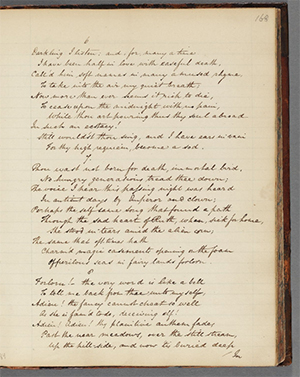 169
6
Darkling I listen; and, for many a time
I have been half in love with easeful death,
Call'd him soft names in many a mused rhyme
To take into the air my quiet breath;
Now more than ever seems it rich to die,
To cease upon the midnight with no pain,
While thou art pouring thus thy soul abroad
In such an ecstacy!
Still wouldst thou sing, and I have ears in vain
For thy high requiem, become a sod.
7
Thou wast not born for death, immortal bird,
No hungry generations tread thee down;
The voice I hear this passing night was heard
In antient days by Emperor and clown;
Perhaps the self same song that found a path
Through the sad heart of Ruth, when, sick for home,
She stood in tears amid the alien corn;
The same that oft times hath
Charm'd magic casements opening on the foam
Of perilous seas in fairy lands forlorn.
8
Forlorn! the very word is like a bell
To toll me back from thee unto myself,
Adieu! the fancy cannot cheat so well
As she is fam'd to do, deceiving elf!
Adieu! Adieu! thy plaintive anthem fades
Past the near meadows, over the still stream,
Up the hill-side, and now 'tis buried deep
In